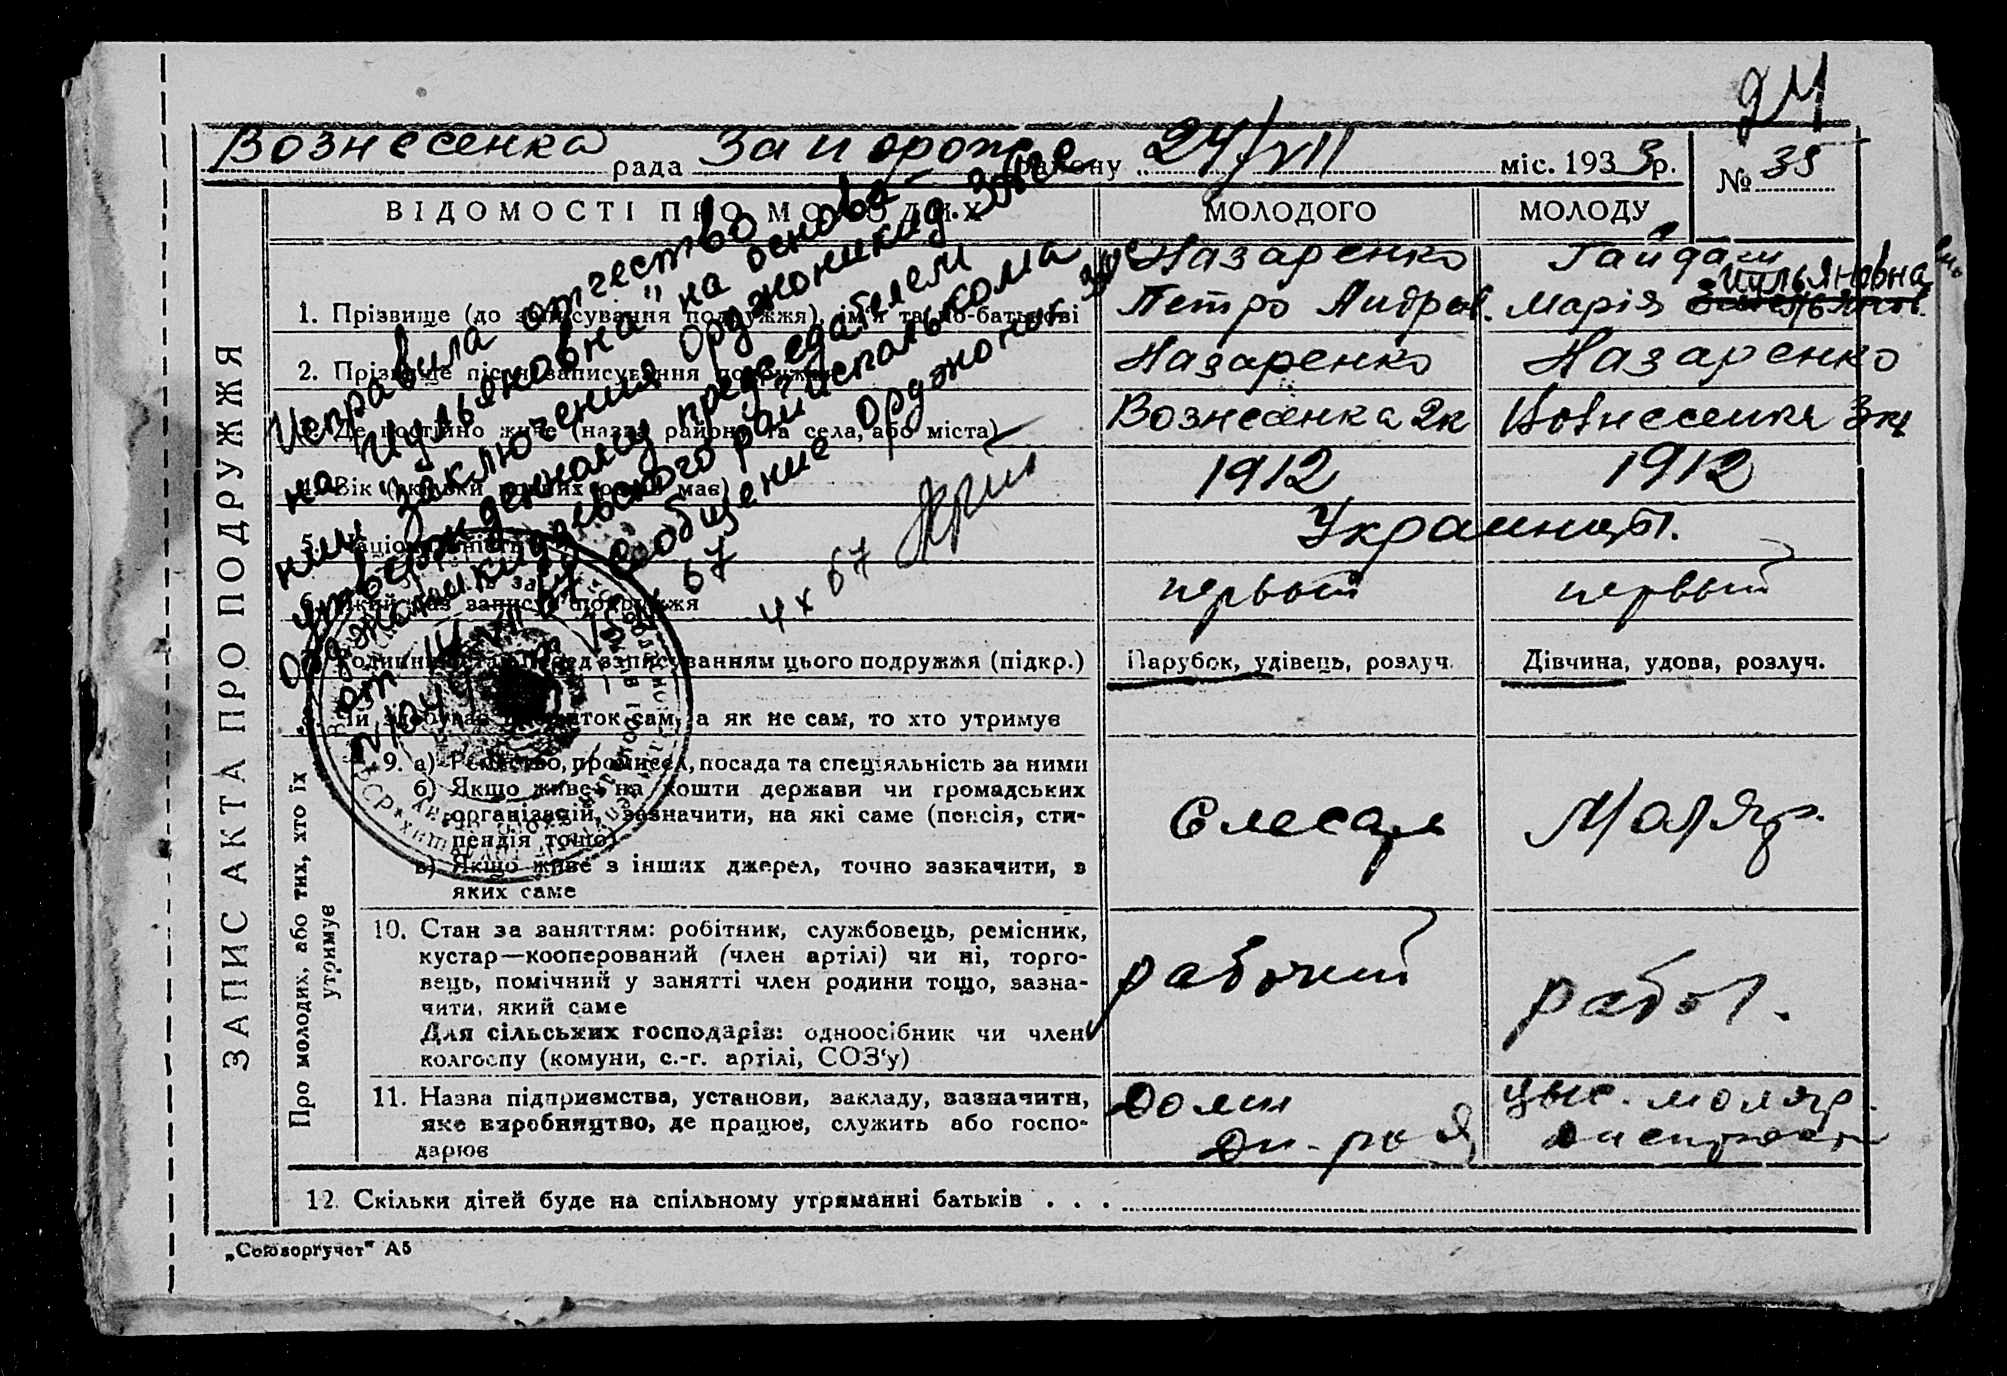 24
Вознесенка рада Запорож району 24/VII міс. 1933 р. № 35
ВІДОМОСТІ ПРО МОЛОДИХ МОЛОДОГО МОЛОДУ
ЗАПИС АКТА ПРО ПОДРУЖЖЯ
Назаренко Гайдам
Иульяновна
1. Прізвище (до записування подружжя), ім'я та по-батькові Петро Андрев. Марія
2. Прізвище після записування подружжя Назаренко Назаренко
3. Де постійно живе (назва району та села, або міста) Вознесенка 2к Вознесенка 3к
4. Вік (скільки повних років має) 1912 1912
5. Національність Украинцы.
6. Який раз записує подружжя первый первый
7. Родинний стан перед записуванням цього подружжя (підкр.) Парубок, удівець, розлуч. Дівчина, удова, розлуч.
8. Чи здобуває прожиток сам, а як не сам, то хто утримує
Про молодих, або тих, хто їх утримує
9. а) Ремество, промисел, посада та спеціяльність за ними
б) Якщо живе на кошти держави чи громадських
організацій, зазначити, на які саме (пенсія, сти-
пендія тощо)
в) Якщо живе з інших джерел, точно зазначити, з
яких саме
Слесарь Маляр.
10. Стан за заняттям: робітник, службовець, ремісник,
кустар—кооперований (член артілі) чи ні, торго-
вець, помічний у занятті член родини тощо, зазна-
чити, який саме
Для сільських господарів: одноосібник чи член
колгоспу (комуни, с.-г. артілі, СОЗ'у)
рабочий работ.
11. Назва підприємства, установи, закладу, зазначити,
яке виробництво, де працює, служить або госпо-
дарює
Домн
маляр.
12. Скільки дітей буде на спільному утриманні батьків . . .
„Союзоргучет" А5
Исправила отчество
на „Иульяновна" на основа-
нии заключения Орджоникид. ЗАГС
утвержденному председателем
Орджоникидзевского райисполкома
от VII 67 сообщение Орджоник ЗАГС
67
4 X 67